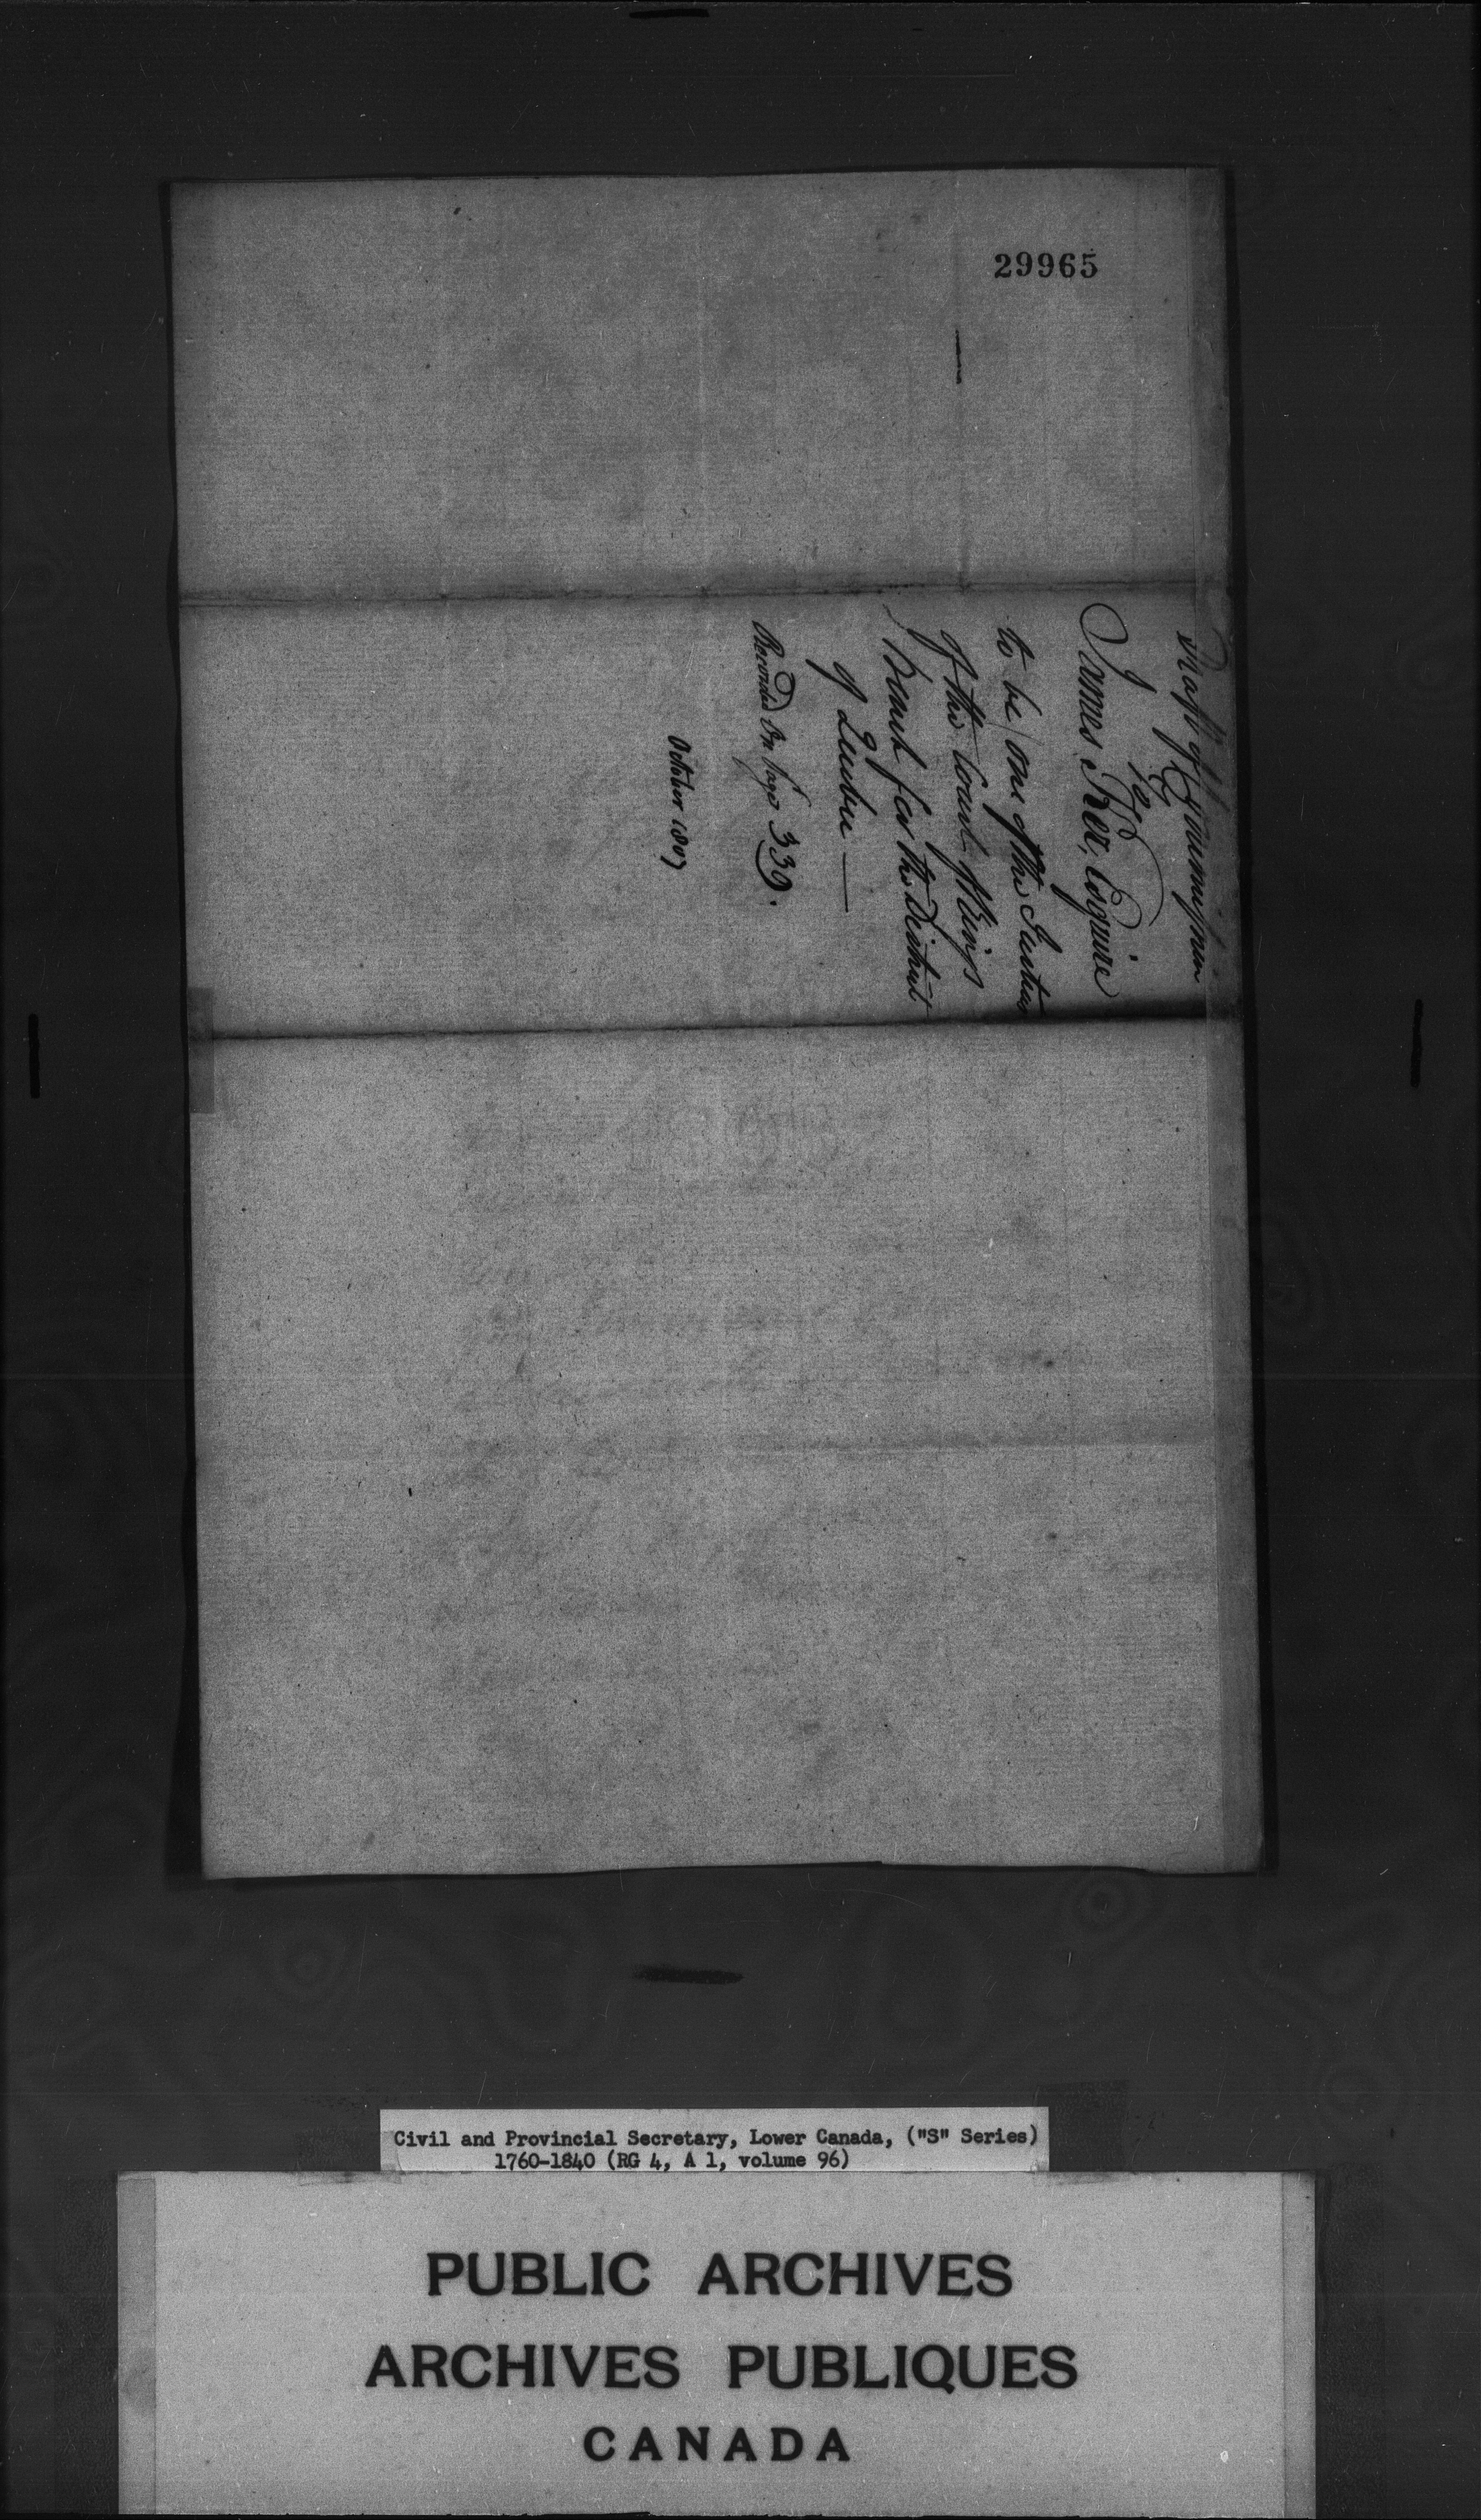 29965
Draft of Commission
for
James Ker, Esquire
to be one of the Justices
of the Court of Kings
Bench for the District
of Quebec —
Recorded On page 339.
October 1807
Civil and Provincial Secretary, Lower Canada, ("S" Series)
1760-1840 (RG 4, A 1, volume 96)
PUBLIC ARCHIVES
ARCHIVES PUBLIQUES
CANADA